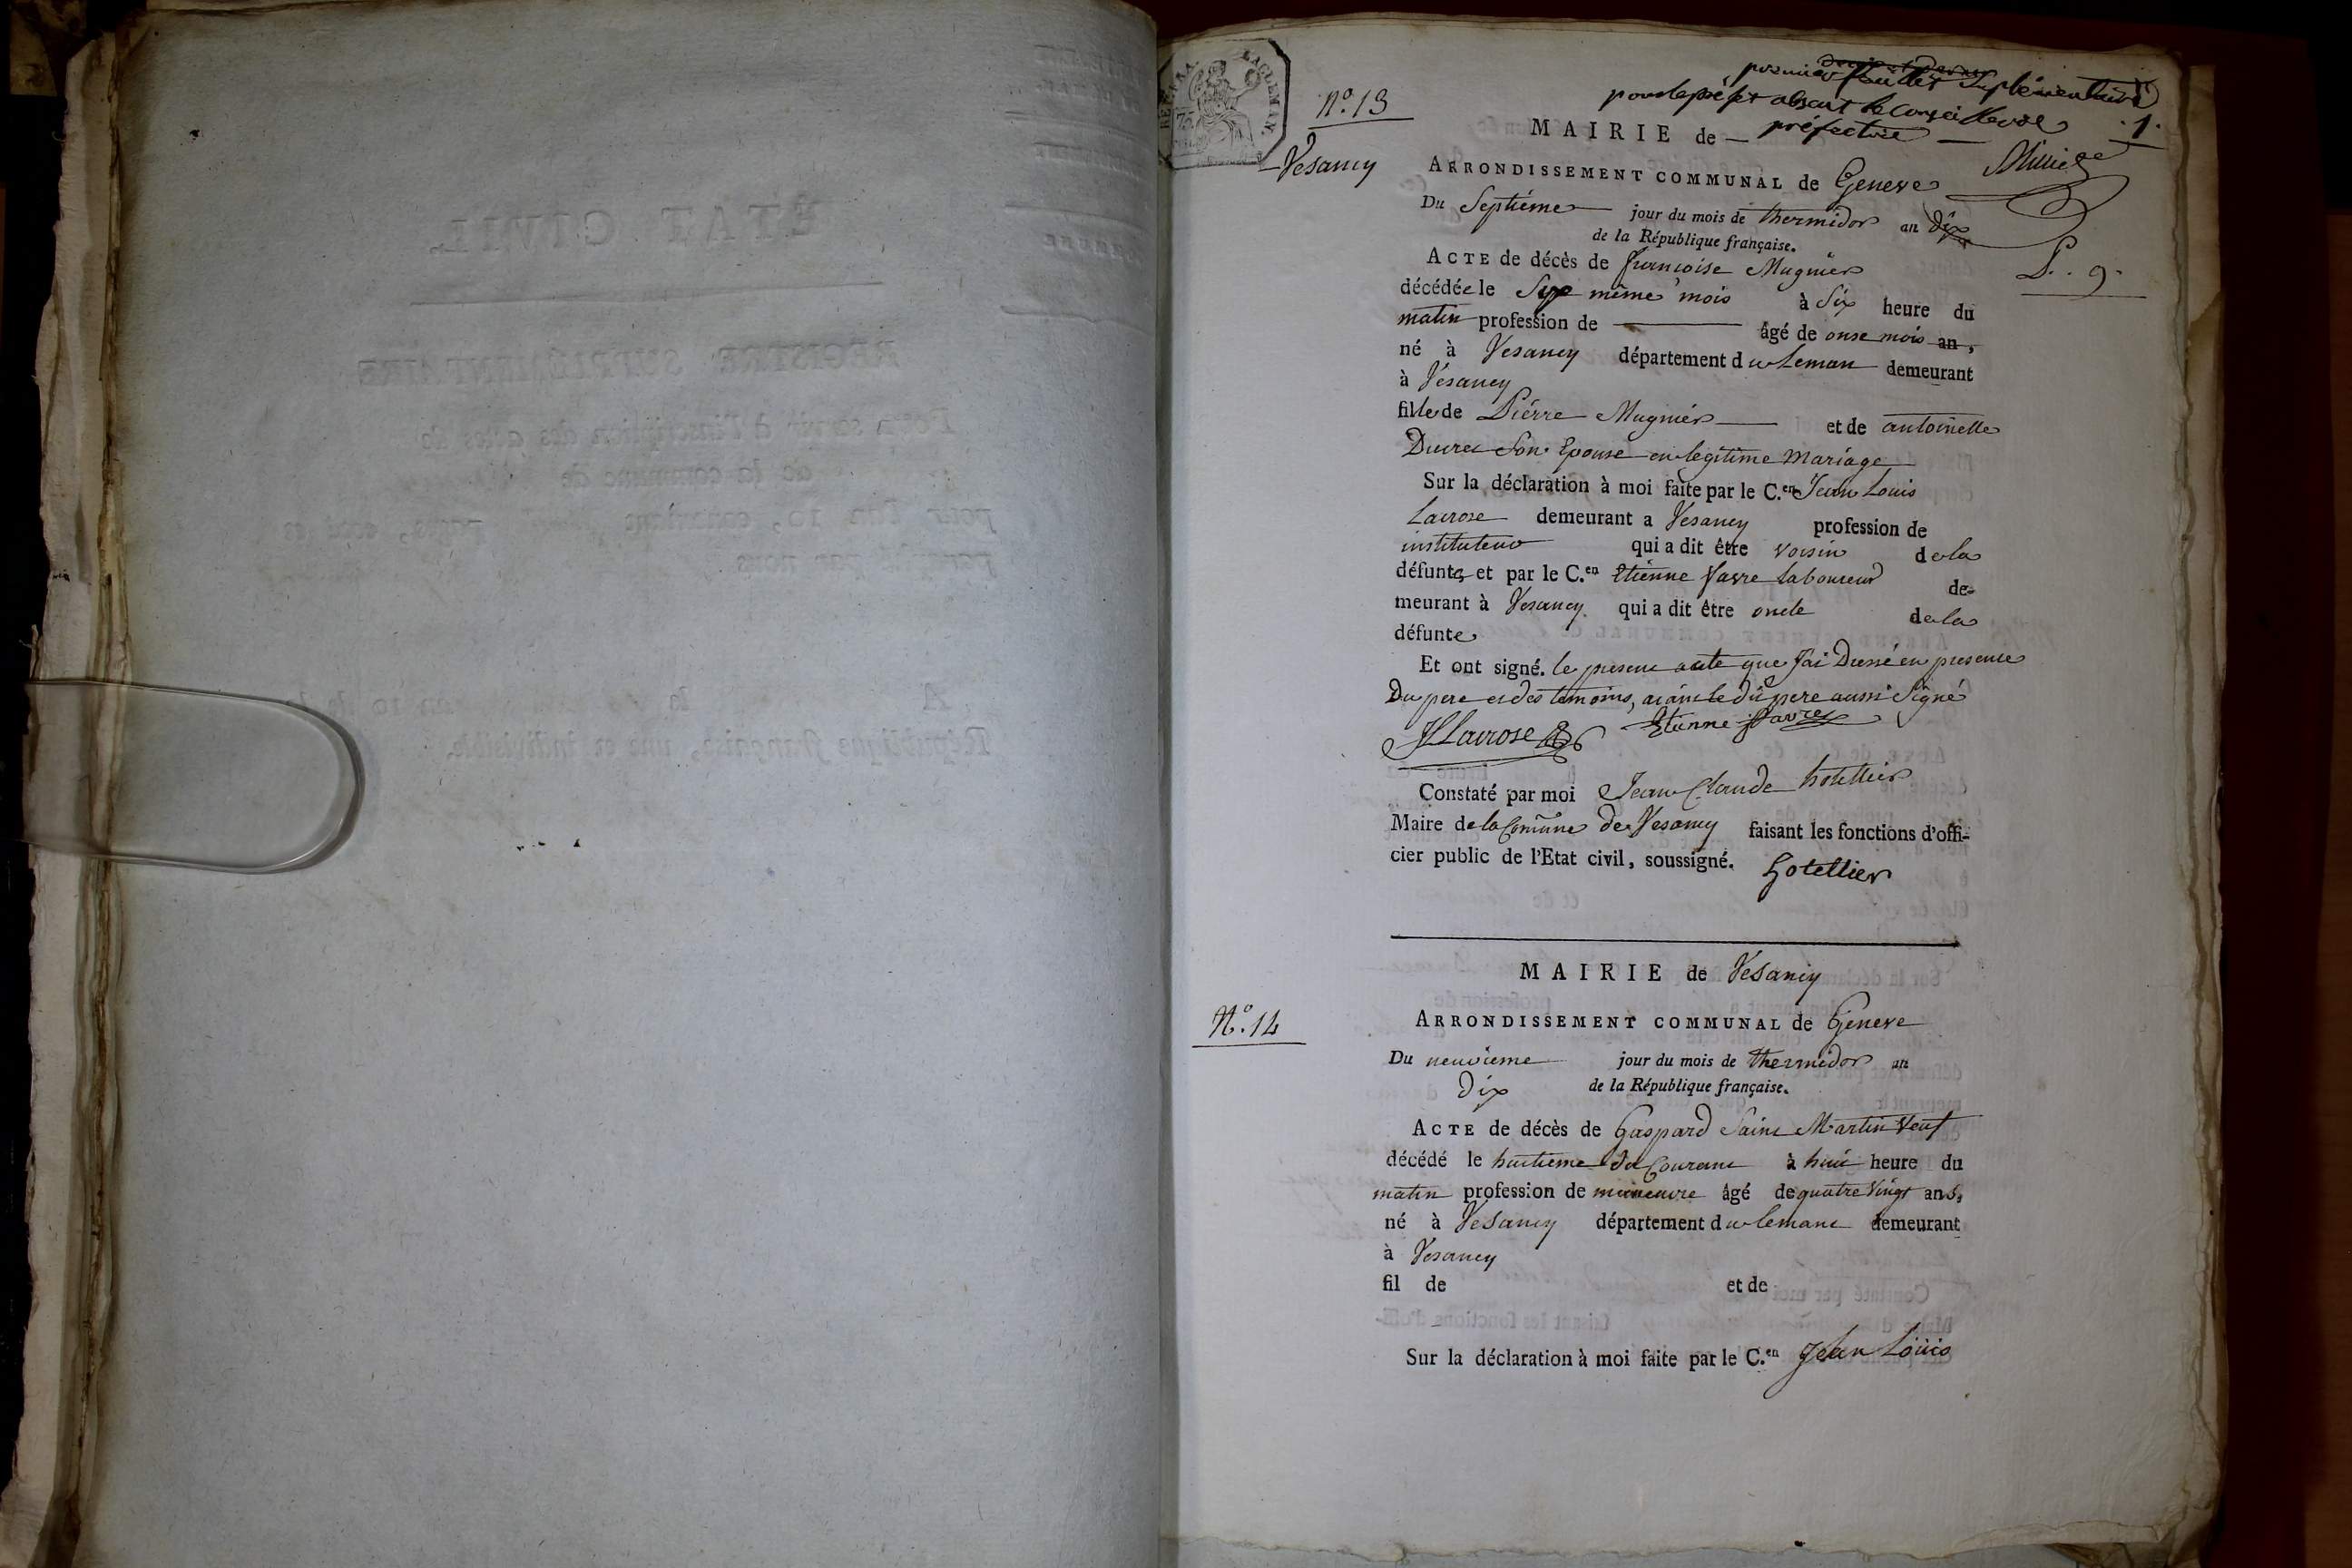 premier feuillet suplémentaire
pour le préfet absent le Conseiller de
N.° 13
MAIRIE de — préfecture —
.1.
Vesancy
ARRONDISSEMENT COMMUNAL de Geneve
Du Septiéme jour du mois de thermidor an dix
de la République française.
P. 9.
ACTE de décès de françoise Mugnier
décédée le Six même mois à Six heure du
matin profession de — âgé de onse mois an,
né à Vesancy département du Leman demeurant
à Vesancy
fille de Piérre Mugnier et de antoinette
Ducret Son Epouse en legitime Mariage
Sur la déclaration à moi faite par le C.en Jean Louis
Lacrose demeurant a Vesancy profession de
instituteur qui a dit être voisin de la
défunte et par le C.en Etiénne favre laboureur de-
meurant à Vesancy qui a dit être oncle de la
défunte
Et ont signé. le present acte que J'ai Dressé en presence
Du pere et des temoins, aiant le dit pere aussi Signé
JLLacrose Etienne favre
Constaté par moi Jean Claude hotellier
Maire de la Comune de Vesancy faisant les fonctions d'offi-
cier public de l'Etat civil, soussigné. hotellier
MAIRIE de Vesancy
N.° 14
ARRONDISSEMENT COMMUNAL de Geneve
Du neuvieme jour du mois de thermidor an
Dix de la République française.
ACTE de décès de Gaspard Saint Martin Veuf
décédé le huitieme du Courant à huit heure du
matin profession de maneuvre âgé de quatre Vingt ans,
né à Vesancy département du lemane demeurant
à Vesancy
fil de et de
Sur la déclaration à moi faite par le C.en Jean Loüis